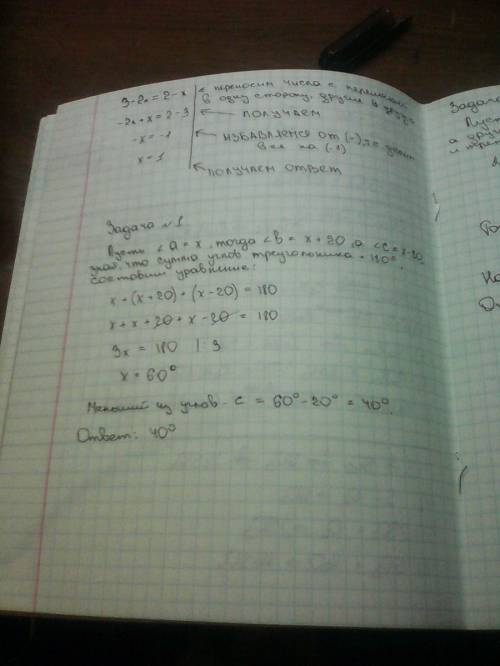 3-2x=2-x ← переносим числа с переменной
в одну сторону, другие в другую
-2x+x=2-3 ← ПОЛУЧАЕМ
-x=-1 ← ИЗБАВЛЯЕМСЯ от (-), т.е. делим
все на (-1)
x=1 ← ПОЛУЧАЕМ ОТВЕТ
Задача №1
Пусть ∠a = x, тогда ∠b = x+20, а ∠c = x-20,
зная, что сумма углов треугольника = 180°,
составим уравнение:
x+(x+20)+(x-20) = 180
x+x+20+x-20 = 180
3x = 180 | 3
x = 60°
Меньший из углов - c = 60°-20° = 40°.
Ответ: 40°
Задача
Пуст
а дру
и пере
От